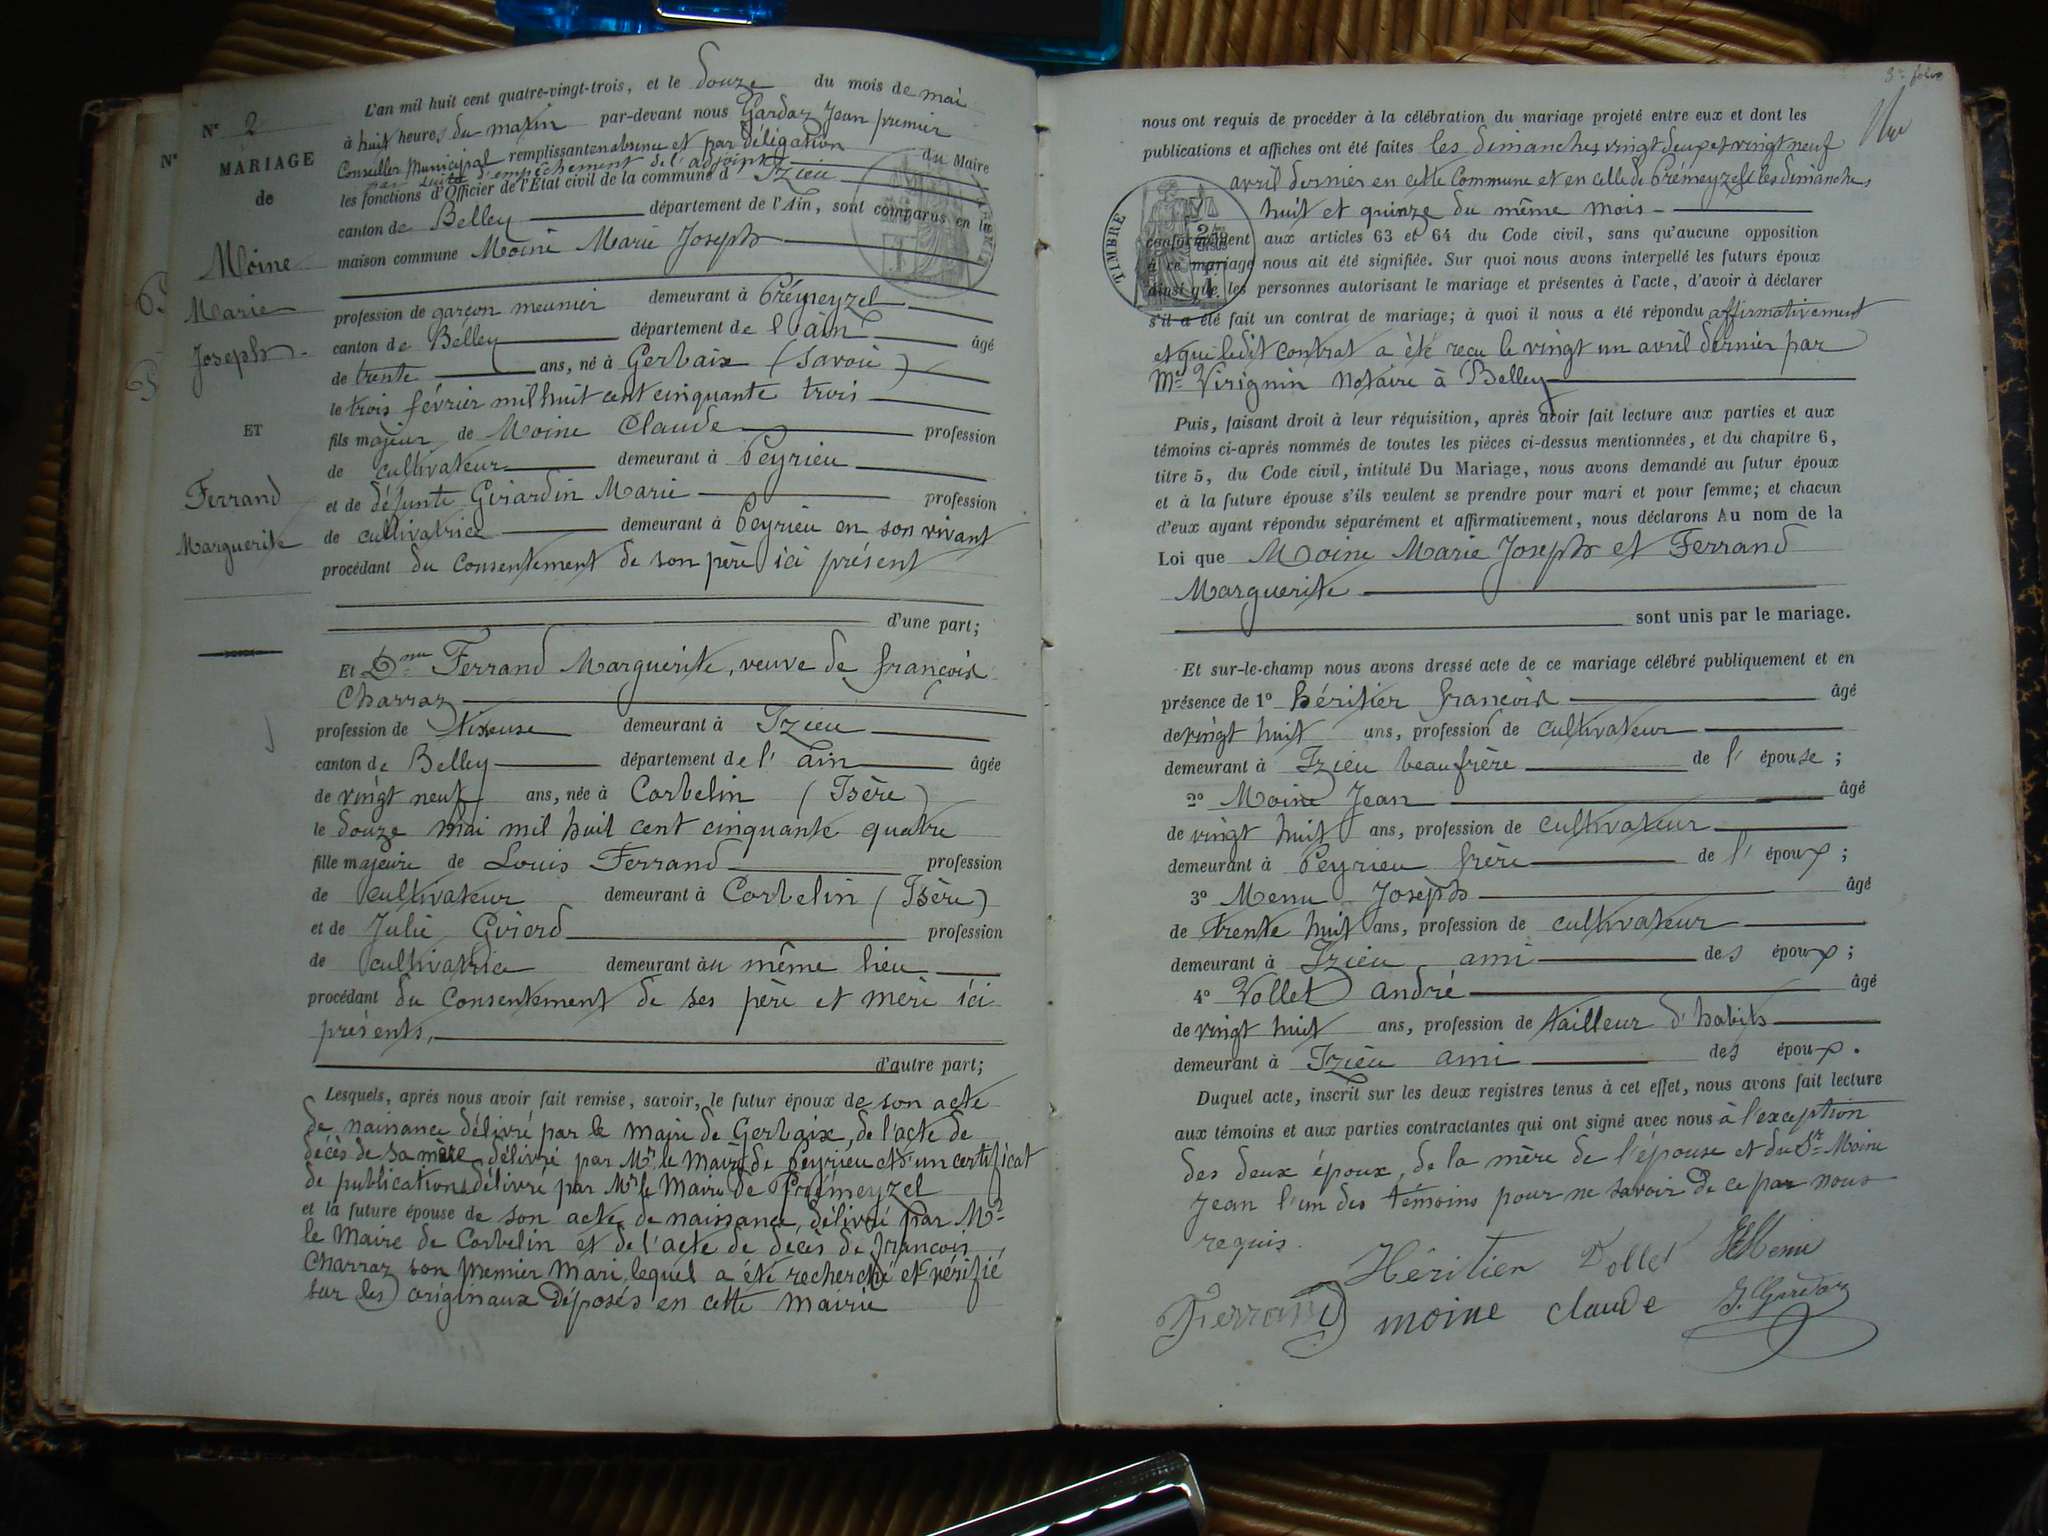 N° 2
N°
MARIAGE
de
Moine
Marie
Joseph
ET
Ferrand
Marguerite
L'an mil huit cent quatre-vingt-trois, et le douze du mois de mai
à huit heures du matin par-devant nous Gardaz Jean premier
Conseiller Municipal remplissant en absence et par délégation du Maire
par suite d'empêchement de l'adjoint
les fonctions d'Officier de l'État civil de la commune d'Izieu
canton de Belley département de l'Ain, sont comparus en la
maison commune Moine Marie Joseph
profession de garçon meunier demeurant à Prémeyzel
canton de Belley département de l'ain âgé
de trente ans, né à Gerbaix (Savoie)
le trois février mil huit cent cinquante trois
fils majeur de Moine Claude profession
de cultivateur demeurant à Peyrieu
et de défunte Girardin Marie profession
de cultivatrice demeurant à Peyrieu en son vivant
procédant du consentement de son père ici présent
d'une part;
Et Dme Ferrand Marguerite, veuve de françois
Charraz
profession de tixeuse demeurant à Izieu
canton de Belley département de l'ain âgée
de vingt neuf ans, née à Corbelin (Isère)
le douze mai mil huit cent cinquante quatre
fille majeure de Louis Ferrand profession
de cultivateur demeurant à Corbelin (Isère)
et de Julie Guierd profession
de cultivatrice demeurant au même lieu
procédant du consentement de ses père et mère ici
présents,
d'autre part;
Lesquels, après nous avoir fait remise, savoir, le futur époux de son acte
de naissance délivré par le maire de Gerbaix, de l'acte de
décès de sa mère délivré par Mr le Maire de Peyrieu et d'un certificat
de publications délivré par Mr le Maire de Prémeyzel
et la future épouse de son acte de naissance, délivré par Mr
le Maire de Corbelin et de l'acte de décès de françois
Charraz son premier mari lequel a été recherché et vérifié
sur les originaux déposés en cette mairie
3e folio
nous ont requis de procéder à la célébration du mariage projeté entre eux et dont les
publications et affiches ont été faites les dimanches vingt deux et vingt neuf
avril dernier en cette Commune et en celle de Prémeyzel les dimanches
huit et quinze du même mois
TIMBRE
conformément aux articles 63 et 64 du Code civil, sans qu'aucune opposition
à ce mariage nous ait été signifiée. Sur quoi nous avons interpellé les futurs époux
ainsi que les personnes autorisant le mariage et présentes à l'acte, d'avoir à déclarer
s'il a été fait un contrat de mariage; à quoi il nous a été répondu affirmativement
et que ledit contrat a été reçu le vingt un avril dernier par
Me Virignin notaire à Belley
Puis, faisant droit à leur réquisition, après avoir fait lecture aux parties et aux
témoins ci-après nommés de toutes les pièces ci-dessus mentionnées, et du chapitre 6,
titre 5, du Code civil, intitulé Du Mariage, nous avons demandé au futur époux
et à la future épouse s'ils veulent se prendre pour mari et pour femme; et chacun
d'eux ayant répondu séparément et affirmativement, nous déclarons Au nom de la
Loi que Moine Marie Joseph et Ferrand
Marguerite
sont unis par le mariage.
Et sur-le-champ nous avons dressé acte de ce mariage célébré publiquement et en
présence de 1° héritier françois âgé
de vingt huit ans, profession de cultivateur
demeurant à Izieu beau frère de l'épouse;
2° Moine Jean âgé
de vingt huit ans, profession de cultivateur
demeurant à Peyrieu frère de l'époux;
3° Menu Joseph âgé
de trente huit ans, profession de cultivateur
demeurant à Izieu ami des époux;
4° Vollet andré âgé
de vingt huit ans, profession de tailleur d'habits
demeurant à Izieu ami des époux.
Duquel acte, inscrit sur les deux registres tenus à cet effet, nous avons fait lecture
aux témoins et aux parties contractantes qui ont signé avec nous à l'exception
des deux époux, de la mère de l'épouse et du Sr Moine
Jean l'un des témoins pour ne savoir de ce par nous
requis.
Héritier Vollet Menu
Ferrand moine claude J. Gardaz